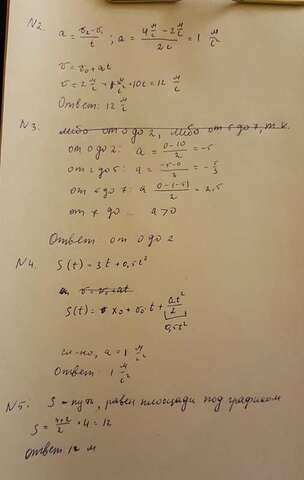 N2. a = (v₂-v₁)/t ; a = (4 м/с - 2 м/с)/2с = 1 м/с²
v = v₀ + at
v = 2 м/с + 1 м/с² · 10с = 12 м/с
Ответ: 12 м/с
N3. либо от 0 до 2, либо от 5 до 7, т.к.
от 0 до 2: a = (0-10)/2 = -5
от 2 до 5: a = (-5-0)/3 = -5/3
от 5 до 7: a (0-(-5))/2 = 2,5
от 7 до .. a > 0
Ответ: от 0 до 2
N4. S(t) = 3t + 0,5t²
v = v₀ + at
S(t) = x₀ + v₀t + at²/2
0,5t²
сл-но, a = 1 м/с²
Ответ: 1 м/с²
N5. S - путь, равен площади под графиком
S = (4+2)/2 · 4 = 12
Ответ 12 м